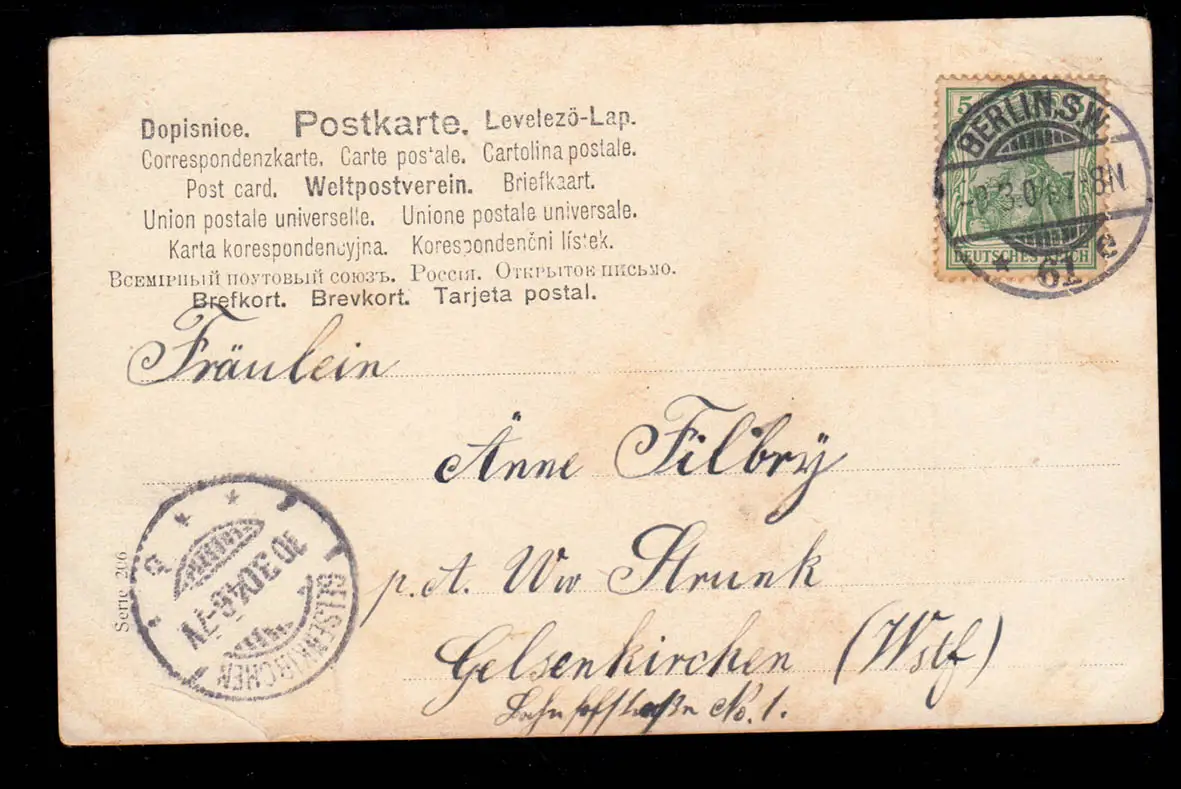 Dopisnice. Postkarte. Levelező-Lap.
Correspondenzkarte. Carte postale. Cartolina postale.
Post card. Weltpostverein. Briefkaart.
Union postale universelle. Unione postale universale.
Karta korespondencyjna. Korespondenčni lístek.
Всемірный поутовый союзъ. Россія. Открытое письмо.
Brefkort. Brevkort. Tarjeta postal.
5
BERLIN.S.W.
3.04.7-8N
DEUTSCHES REICH
* 61 e
Fräulein
Änne Filbry
p. A. Ww Strunk
Gelsenkirchen (Wstf)
Bahnhofstraße No. 1.
GELSENKIRCHEN
10.3.04.6-7V
Serie 206